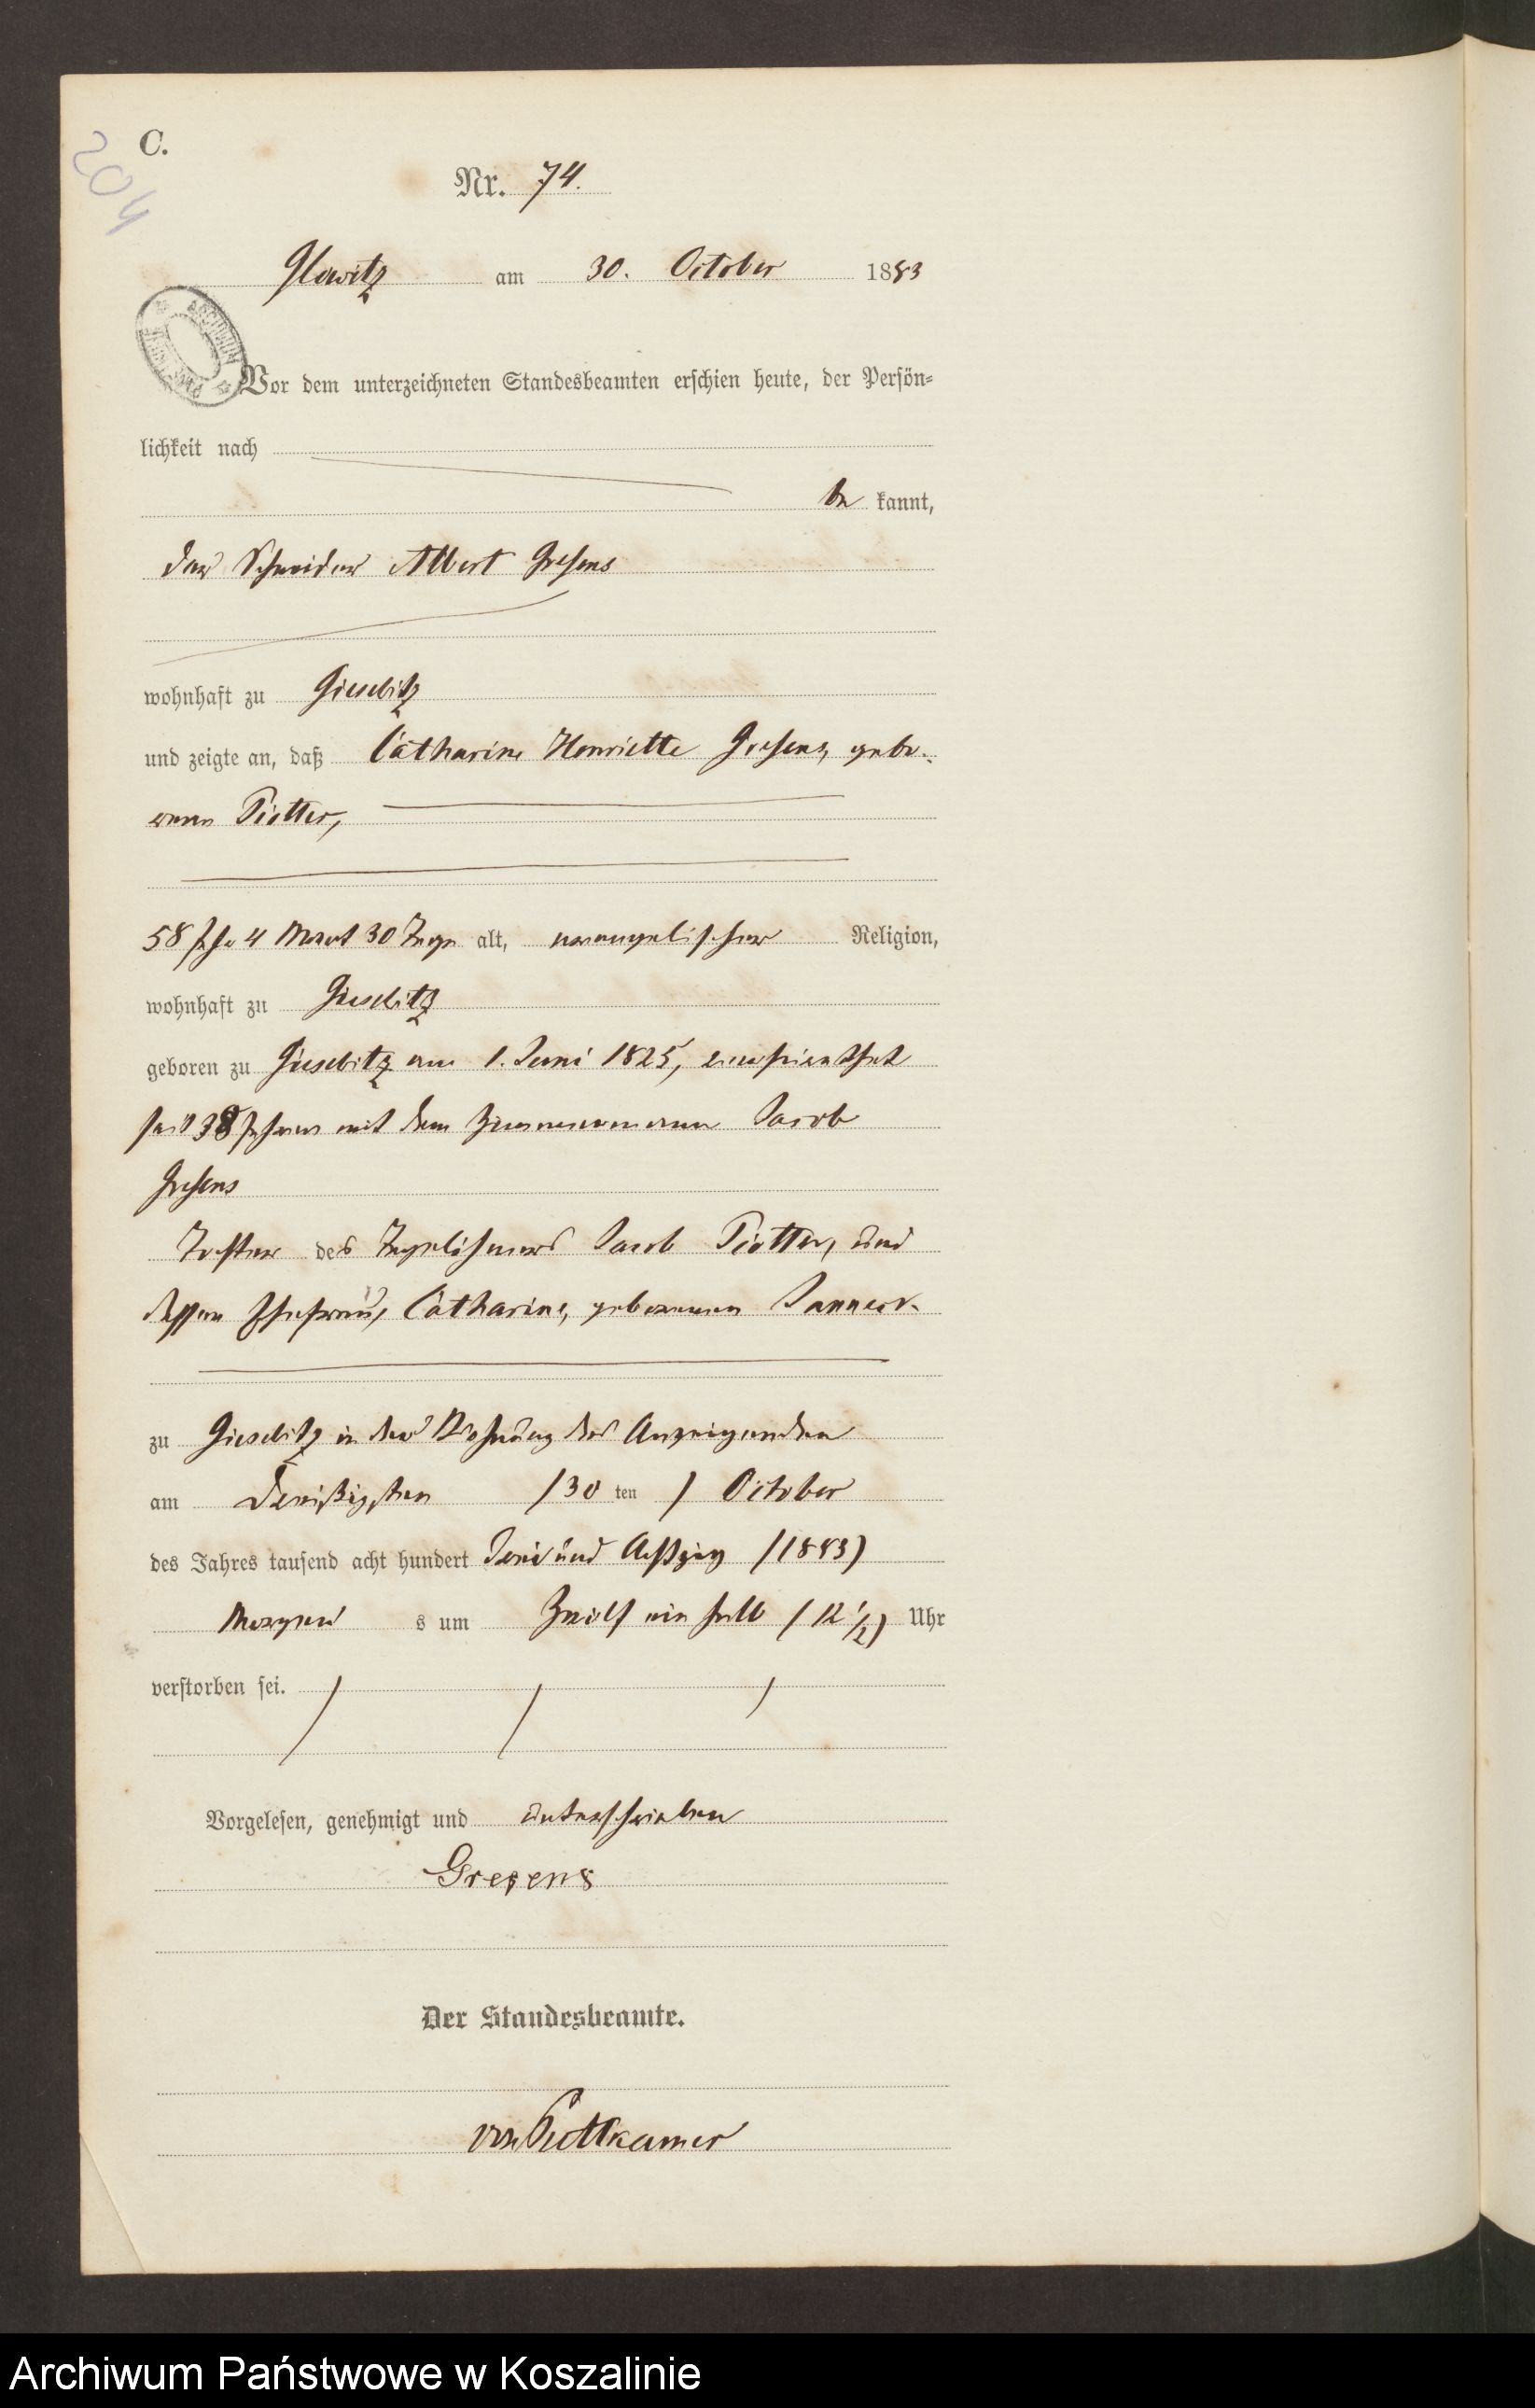 C.
204
Nr. 74.
Glowitz am 30. October 1883
Vor dem unterzeichneten Standesbeamten erschien heute, der Persön-
lichkeit nach
be kannt,
der Schneider Albert Gresens
wohnhaft zu Giesebitz
und zeigte an, daß Catharine Henriette Gresens, gebo-
rene Piotter,
58 Jahr 4 Monat 30 Tage alt, evangelischer Religion,
wohnhaft zu Giesebitz
geboren zu Giesebitz am 1. Juni 1825, verheirathet
seit 38 Jahren mit dem Zimmermann Jacob
Gresens
Tochter des Tagelöhners Jacob Piotter, und
dessen Ehefrau, Catharine, geborenen
zu Giesebitz in der Wohnung des Anzeigenden
am Dreißigsten /30 ten / October
des Jahres tausend acht hundert Drei und Achtzig /1883)
Morgen s um Zwölf ein halb / 12 1/2) Uhr
verstorben sei.
Vorgelesen, genehmigt und unterschrieben
Gresens
Der Standesbeamte.
von Puttkamer
Archiwum Państwowe w Koszalinie